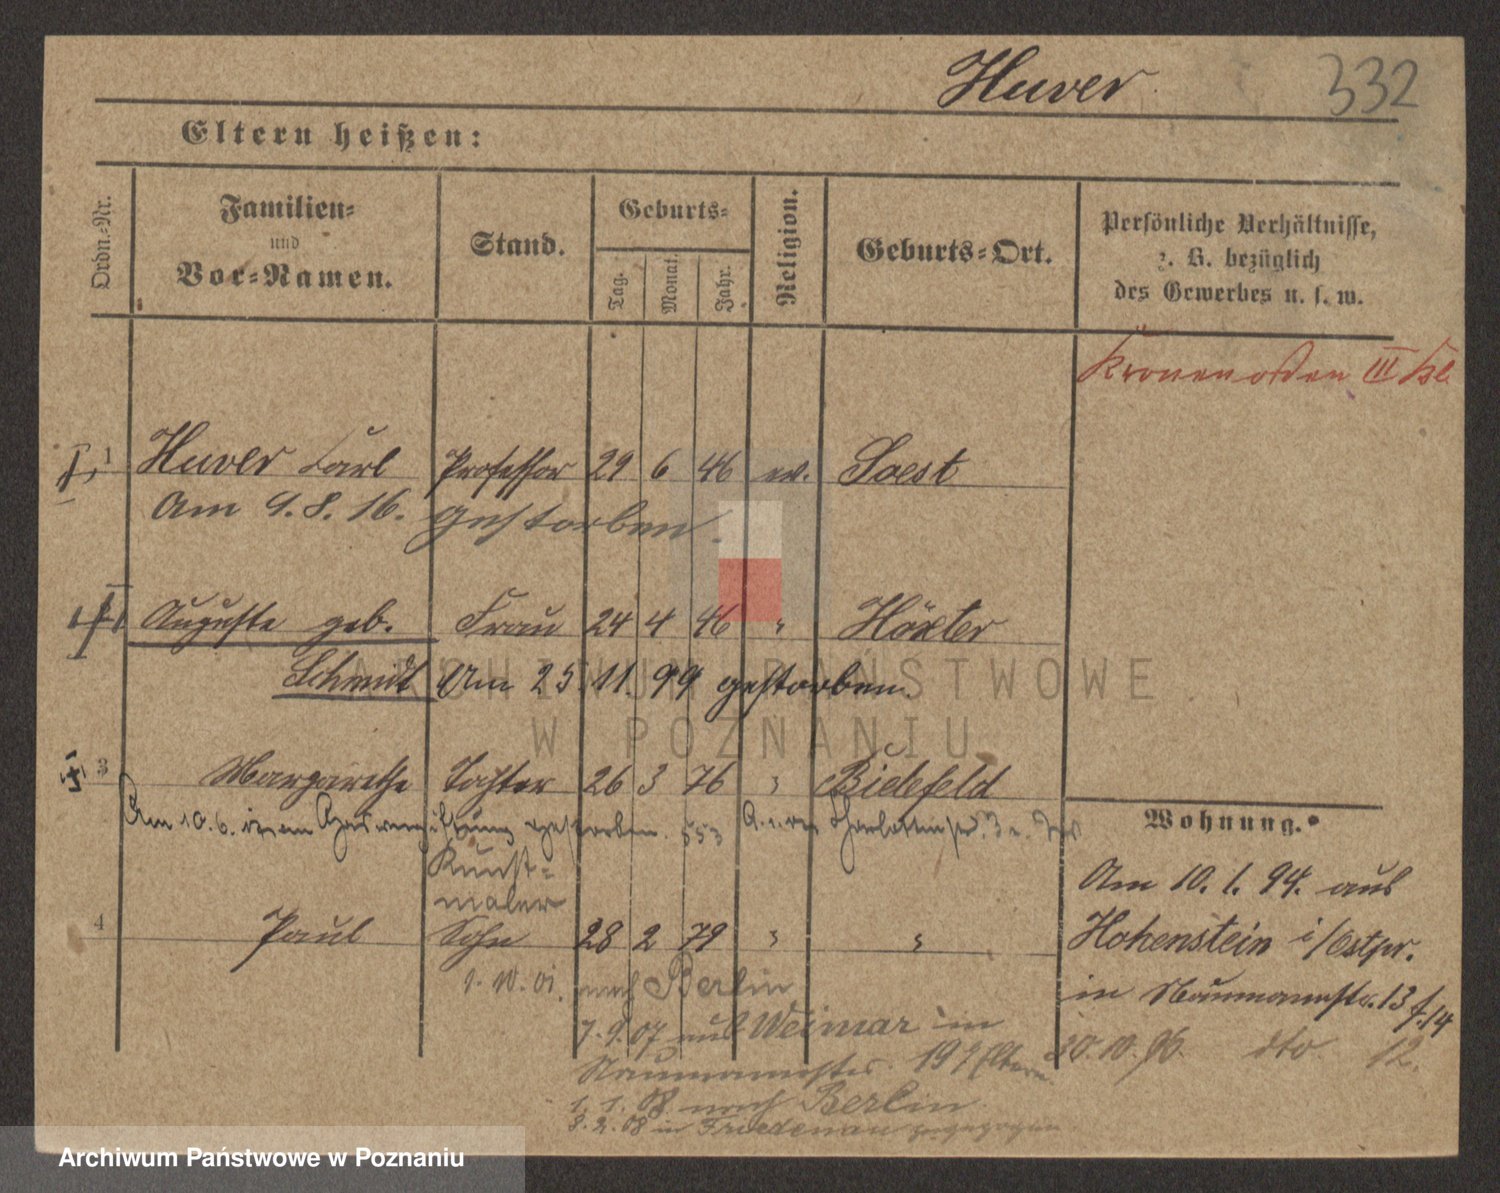 Huver 332
Eltern heißen:
Ordn.-Nr.
Familien- und Vor-Namen.
Stand.
Geburts-
Tag. Monat. Jahr.
Religion.
Geburts-Ort.
Persönliche Verhältnisse,
z. B. bezüglich
des Gewerbes u. s. w.
Kronenorden III Kl.
1 Huver Carl Professor 29 6 46 ev. Soest
Am 9. 8. 16. gestorben.
Auguste geb. Frau 24 4 46 " Höxter
Schmidt Am 25. 11. 99 gestorben.
3 Margarethe Tochter 26 3 76 " Bielefeld
Am 10. 6. an Gasvergiftung gestorben. 553
Wohnung.
Kunst-
maler
4 Paul Sohn 28 2 79 " "
Am 10. 1. 94. aus
Hohenstein i/Ostpr.
in Naumannstr. 13
20. 10. 96. dto 12.
1. 10. 01. nach Berlin
7. 9. 07 aus Weimar in
Naumannstr. 19 Eltern
1. 1. 08 nach Berlin
8. 2. 08 in Friedenau zugezogen
ARCHIWUM PAŃSTWOWE
W POZNANIU
Archiwum Państwowe w Poznaniu